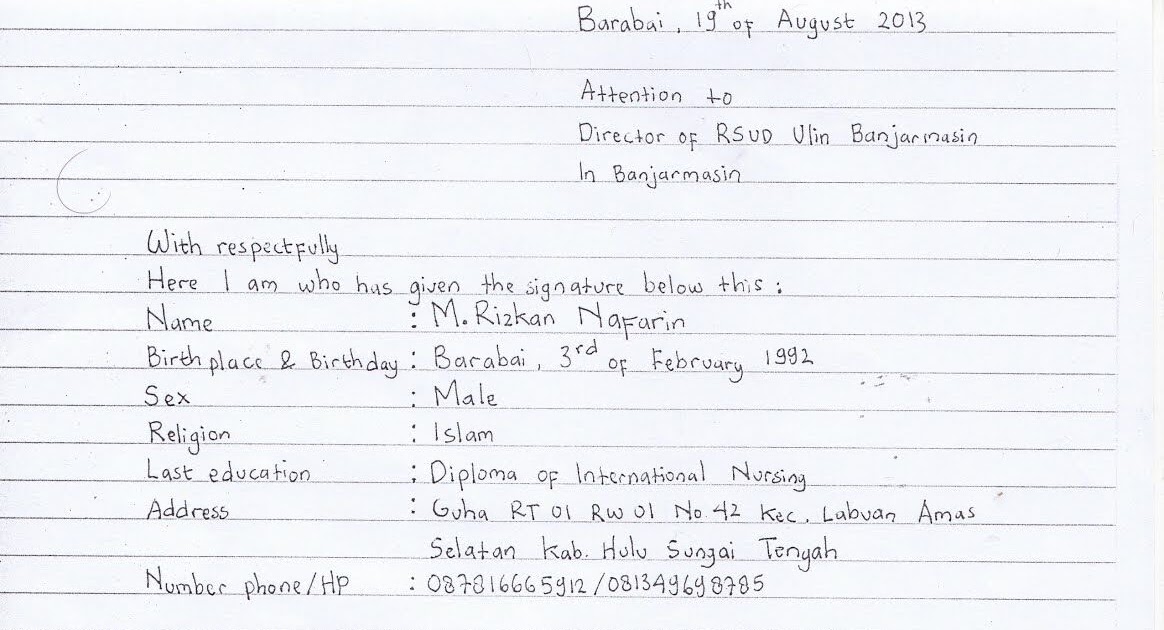 Barabai, 19th of August 2013
Attention to
Director of RSUD Ulin Banjarmasin
In Banjarmasin
With respectfully
Here I am who has given the signature below this :
Name : M. Rizkan Nafarin
Birth place & Birthday : Barabai, 3rd of February 1992
Sex : Male
Religion : Islam
Last education : Diploma of International Nursing
Address : Guha RT 01 RW 01 No. 42 Kec. Labuan Amas
Selatan Kab. Hulu Sungai Tengah
Number phone/HP : 087816665912 / 081349698785